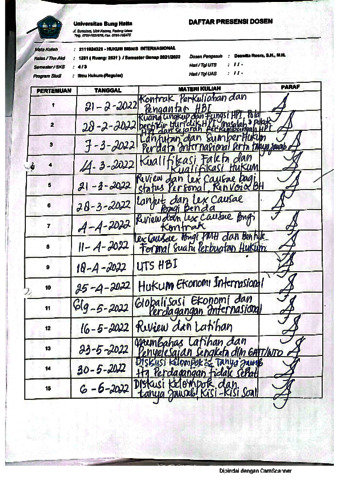 Universitas Bung Hatta
DAFTAR PRESENSI DOSEN
Mata Kuliah : 2111024226 - HUKUM BISNIS INTERNASIONAL
Kelas / The Aid : 1281 ( Ruang: 2821 ) / Semester Genap 2021/2022
Dosen Pengasuh :
Semester / SKS : 4 / 3
Hari / Tgl UTS : / / -
Program Studi : Ilmu Hukum (Reguler)
Hari / Tgl UAS : / / -
PERTEMUAN TANGGAL MATERI KULIAH PARAF
1 21-2-2022 Kontrak Perkuliahan dan
Pengantar HBI
2 28-2-2022 Ruang Lingkup dan Fungsi HPI, Pola
HPI dan Sejarah Perkembangan HPI
3 7-3-2022 dan Sumber Hukum
Perdata Internasional serta Tanya Jawab
4 14-3-2022 Kualifikasi Fakta dan
Kualifikasi Hukum
5 21-3-2022 Review dan Lex Causae bagi
Status Personal, Renvoi
6 28-3-2022 Lanjut dan Lex Causae
Bagi Benda
7 4-4-2022 Review dan Lex Causae Bagi
Kontrak
8 11-4-2022 Lex Causae Bagi PMH dan Bentuk
Formal Suatu Perbuatan Hukum
9 18-4-2022 UTS HBI
10 25-4-2022 Hukum Ekonomi Internasional
11 9-5-2022 Globalisasi Ekonomi dan
Perdagangan Internasional
12 16-5-2022 Review dan Latihan
13 23-5-2022 Membahas Latihan dan
Penyelesaian Sengketa dlm GATT/WTO
14 30-5-2022 Diskusi Kelompok & Tanya Jawab
Perdagangan Tidak Sehat
15 6-6-2022 Diskusi Kelompok dan
tanya jawab Kisi-Kisi Soal
Dipindai dengan CamScanner